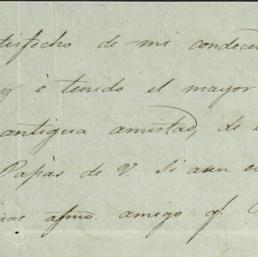 tisfecho de mi condece
y é tenido el mayor
antigua amistad, de
Papás de V. Si aun
afmo. amigo q.